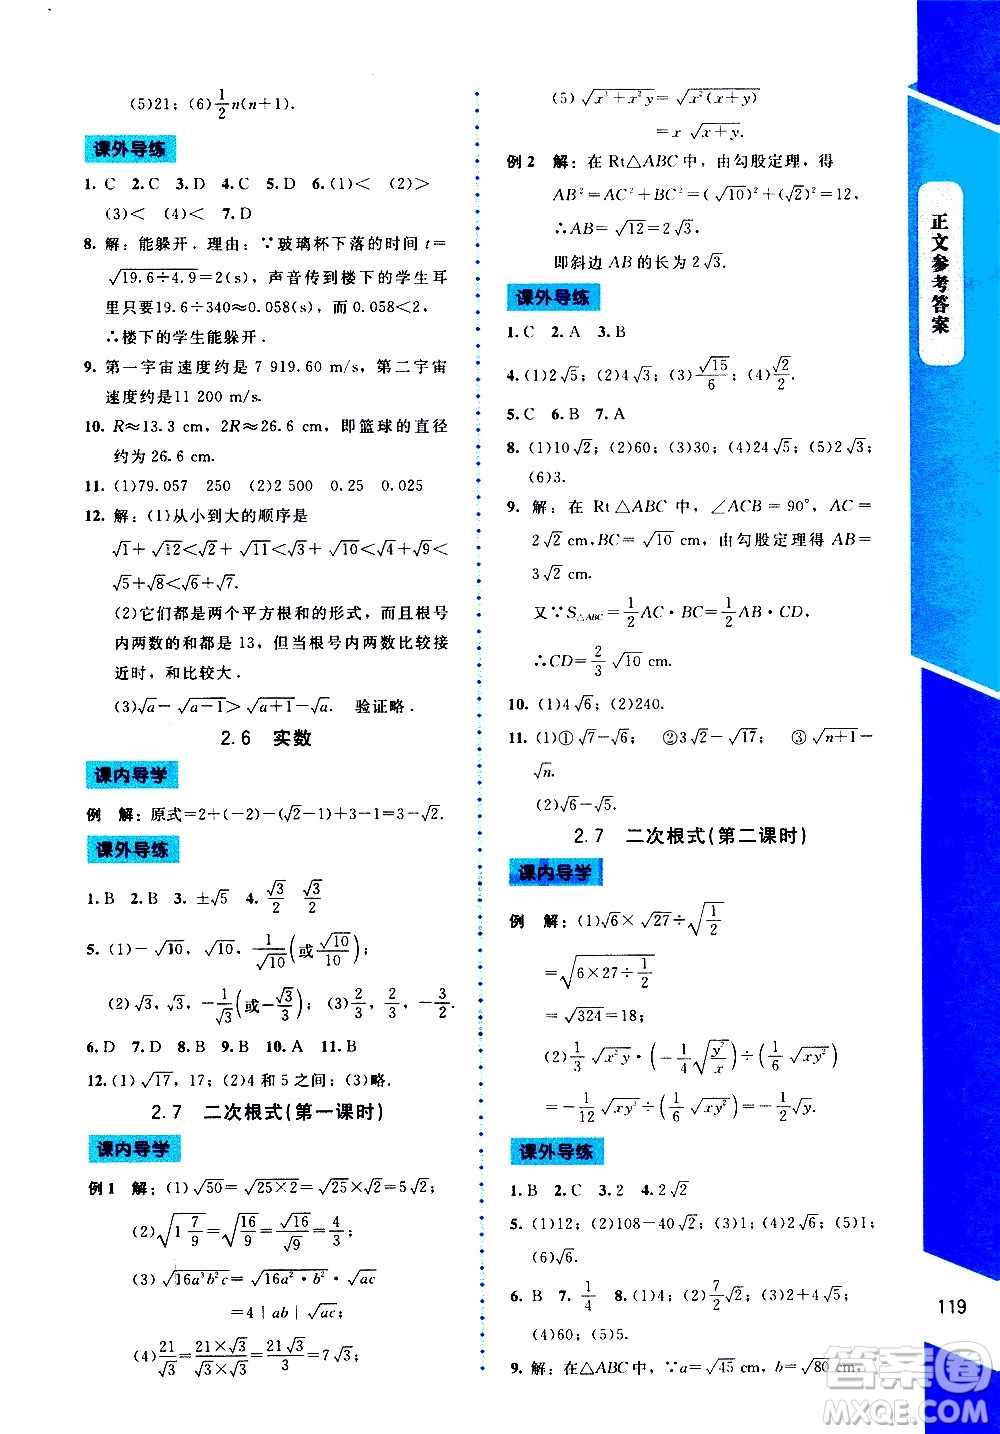 (5)21；(6)$\frac{1}{2}$n(n+1).
课外导练
1. C 2. C 3. D 4. C 5. D 6. (1)< (2)>
(3)< (4)< 7. D
8. 解：能躲开. 理由：∵玻璃杯下落的时间 t=
√(19.6÷4.9)=2(s)，声音传到楼下的学生耳
里只要19.6÷340≈0.058(s)，0.058<2，
∴楼下的学生能躲开.
9. 第一宇宙速度约是 7 919.60 m/s，第二宇宙
速度约是11 200 m/s.
10. R≈13.3 cm，2R≈26.6 cm，即篮球的直径
约为 26.6 cm.
11. (1)79.057 250 (2)2 500 0.25 0.025
12. 解：(1)从小到大的顺序是
√1+√12<√2+√11<√3+√10<√4+√9<
√5+√8<√6+√7.
(2)它们都是两个平方根和的形式，而且根号
内两数的和都是 13，但当根号内两数比较接
近时，和比较大.
(3)√a-√(a-1)>√(a+1)-√a. 验证略.
2.6 实数
课内导学
例 解：原式=2+(-2)-(√2-1)+3-1=3-√2.
课外导练
1. B 2. B 3. ±√5 4. √3/2 √3/2
5. (1)-√10，√10，1/√10(或√10/10)；
(2)√3，√3，-1/√3(或-√3/3)；(3)2/3，2/3，-3/2.
6. D 7. D 8. B 9. B 10. A 11. B
12. (1)√17，17；(2)4 和 5 之间；(3)略.
2.7 二次根式(第一课时)
课内导学
例1 解：(1)√50=√(25×2)=√25×√2=5√2；
(2)√(1 7/9)=√(16/9)=√16/√9=4/3；
(3)√(16a³b²c)=√(16a²·b²)·√(ac)
=4|ab|√(ac)；
(4)21/√3=(21×√3)/(√3×√3)=21√3/3=7√3.
(5)√(x³+x²y)=√(x²(x+y))
=x√(x+y).
例2 解：在 Rt△ABC 中，由勾股定理，得
AB²=AC²+BC²=(√10)²+(√2)²=12，
∴AB=√12=2√3.
即斜边 AB 的长为 2√3.
课外导练
1. C 2. A 3. B
4. (1)2√5；(2)4√3；(3)√15/6；(4)√2/2.
5. C 6. B 7. A
8. (1)10√2；(2)60；(3)30；(4)24√5；(5)2√3；
(6)3.
9. 解：在 Rt△ABC 中，∠ACB=90°，AC=
2√2 cm，BC=√10 cm，由勾股定理得 AB=
3√2 cm.
又∵S△ABC=1/2 AC·BC=1/2 AB·CD，
∴CD=2/3 √10 cm.
10. (1)4√5；(2)240.
11. (1)①√7-√6 ②3√2-√17 ③√(n+1)-
√n.
(2)√6-√5.
2.7 二次根式(第二课时)
课内导学
例 解：(1)√6×√27÷√(1/2)
=√(6×27÷1/2)
=√324=18；
(2)1/3 √(x²y)·(-1/4 √(y²/x))÷(1/6 √(xy²))
=-1/12 √(xy³)÷(1/6 √(xy²))=-1/2 √y.
课外导练
1. B 2. C 3. 2 4. 2√2
5. (1)12；(2)108-40√2；(3)1；(4)√2；(5)1；
(6)√6.
6. B 7. 1/4 8. (1)4；(2)7/2 √2；(3)12+8√2；
(4)60；(5)5.
9. 解：在△ABC 中，∵a=√45 cm，b=√80 cm，
正文参考答案
119
答案圈
MXQE.COM